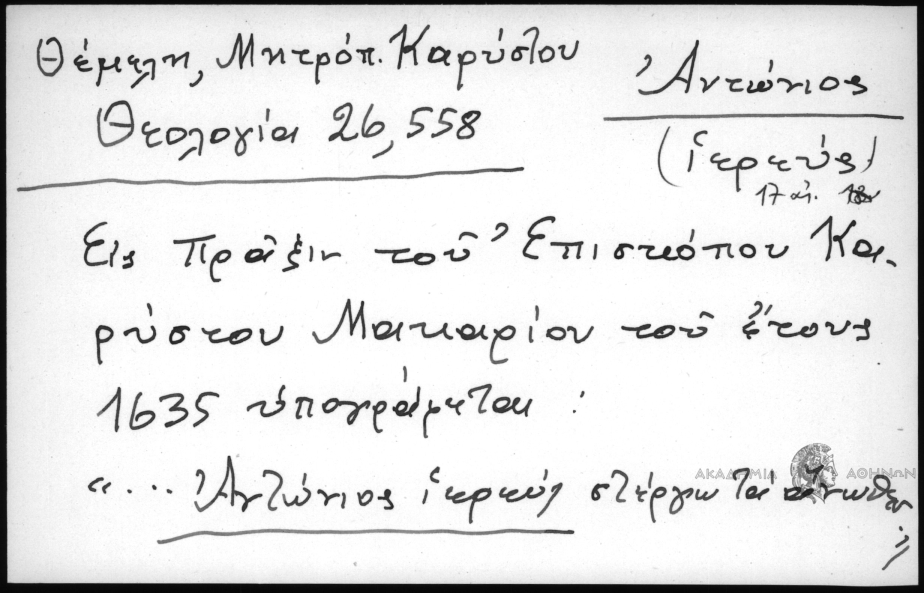 Θέμελη, Μητρόπ. Καρύστου
Θεολογία 26,558
Ἀντώνιος
(ἱερεύς)
17 αἰ.
Εἰς Πρᾶξιν τοῦ Ἐπισκόπου Κα-
ρύστου Μακαρίου τοῦ ἔτους
1635 ὑπογράφεται :
«... Ἀντώνιος ἱερεύς στέργω τά ἄνωθεν
»
ΑΚΑΔΗΜΙΑ ΑΘΗΝΩΝ